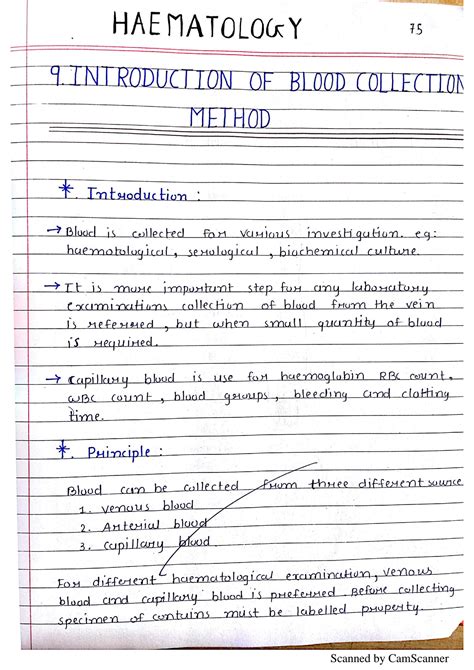 HAEMATOLOGY
75
9. INTRODUCTION OF BLOOD COLLECTION
METHOD
*. Introduction :
→ Blood is collected for various investigation. eg:
haematological, serological, biochemical culture.
→ It is more important step for any laboratory
examinations collection of blood from the vein
is referred, but when small quantity of blood
is required.
→ Capillary blood is use for haemoglobin RBC count,
WBC count, blood groups, bleeding and clotting
time.
*. Principle :
Blood can be collected from three different source
1. Venous blood
2. Arterial blood
3. Capillary blood
For different haematological examination, venous
blood and capillary blood is preferred. Before collecting
specimen of contains must be labelled property.
Scanned by CamScanner